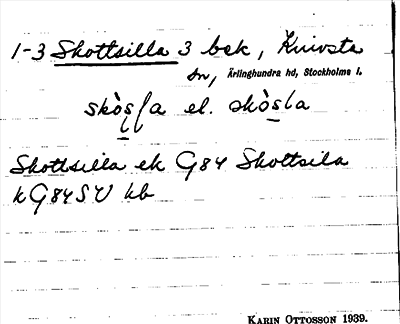 1-3 Skottsilla 3 bek, Knivsta
sn, Ärlinghundra hd, Stockholms l.
skòsla el. skòsla
Skottsilla ek G84 Skottsila
k G84SV kb
KARIN OTTOSSON 1939.